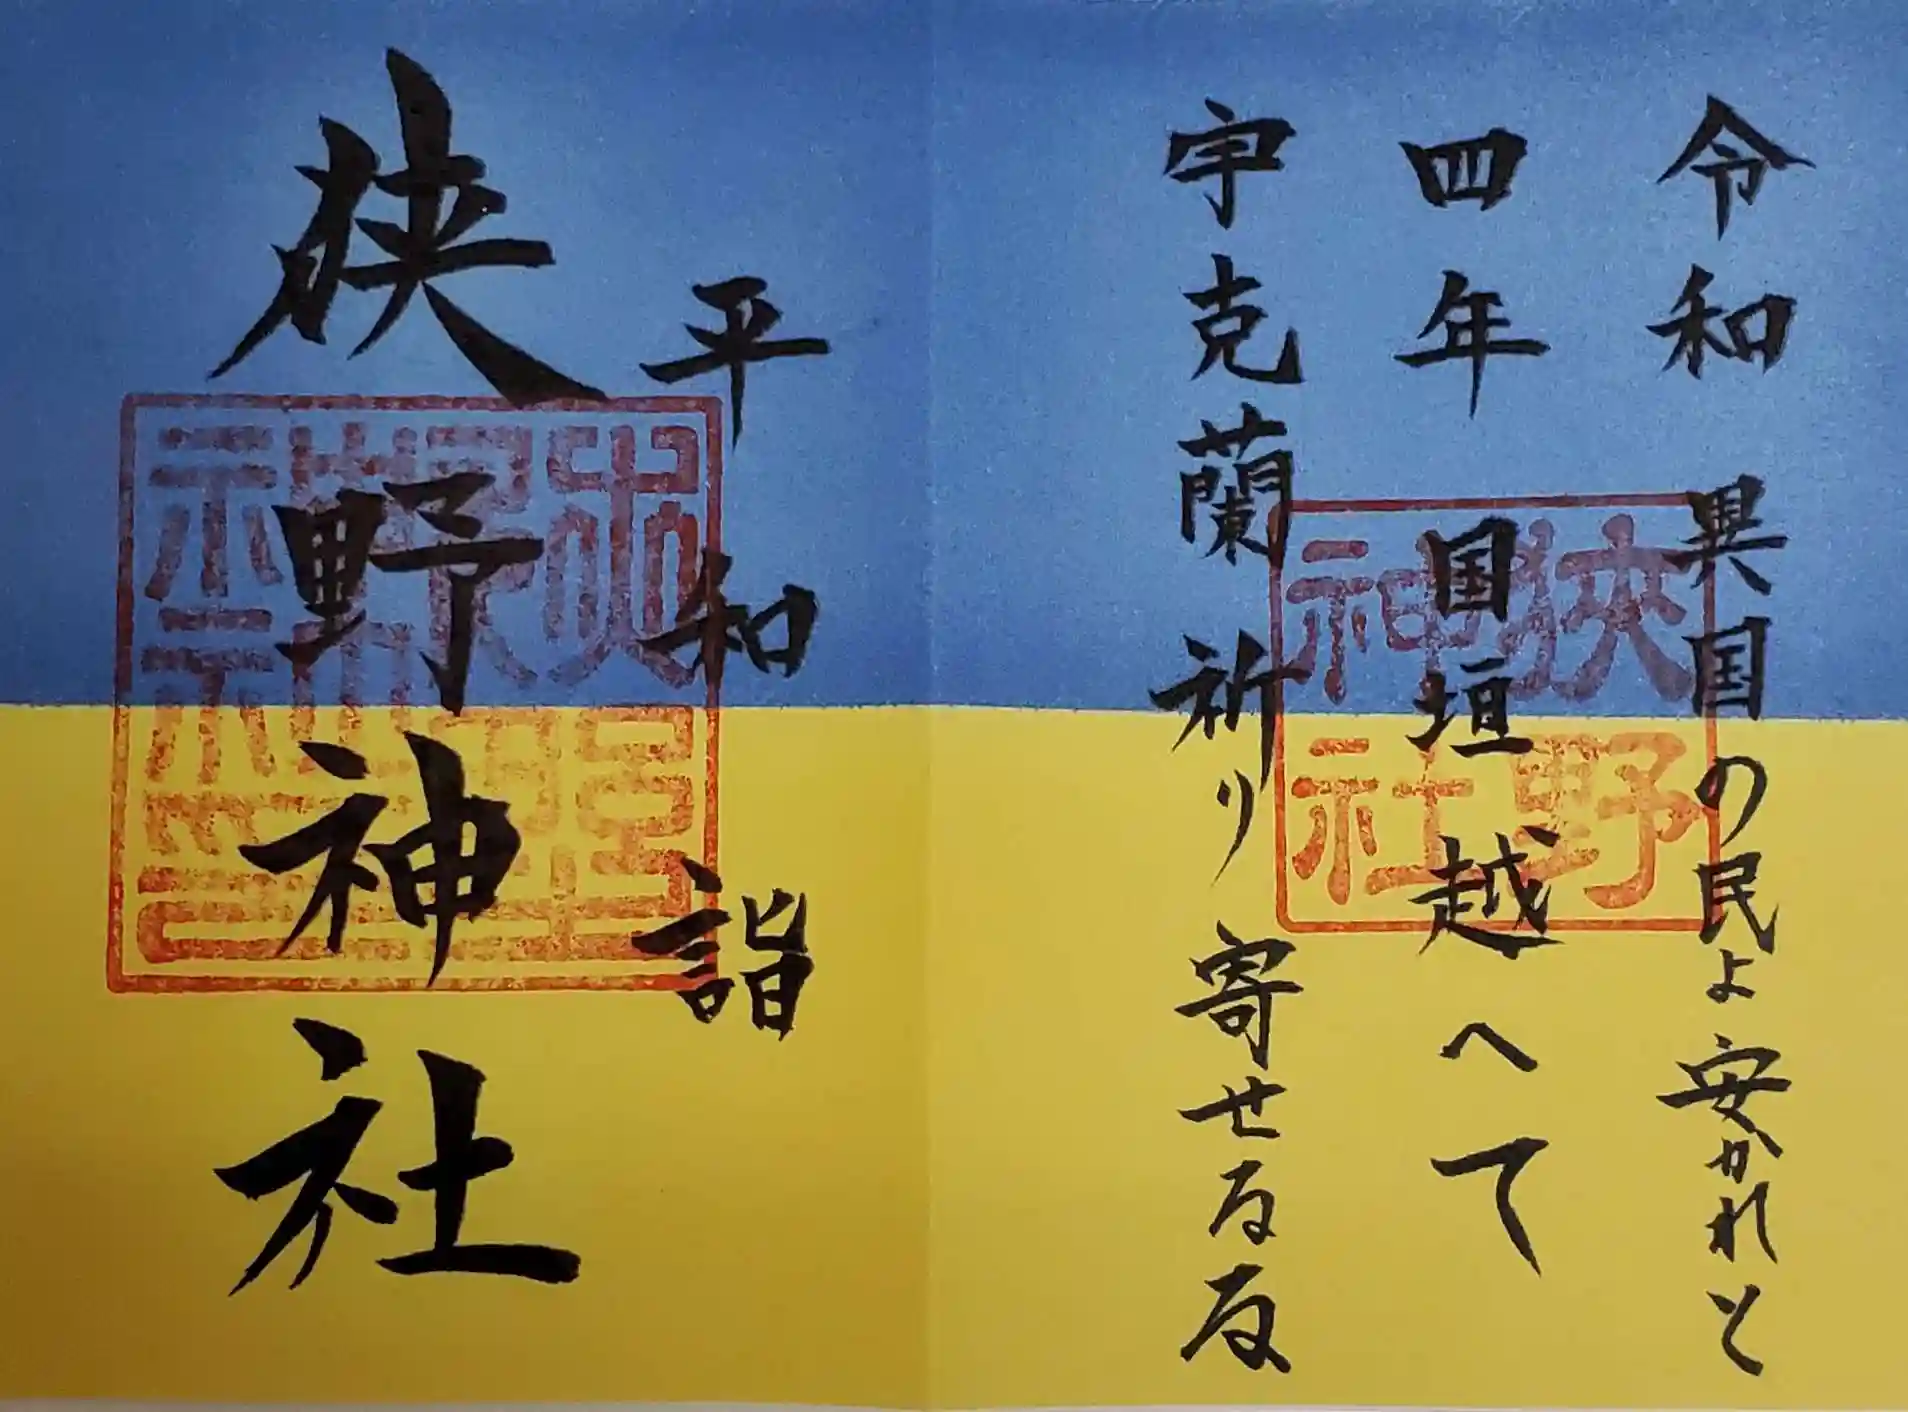 令和 異国の民よ安かれと
四年 国垣越へて
宇克蘭 祈り寄せ
狭野
神社
平和詣
狭野神社